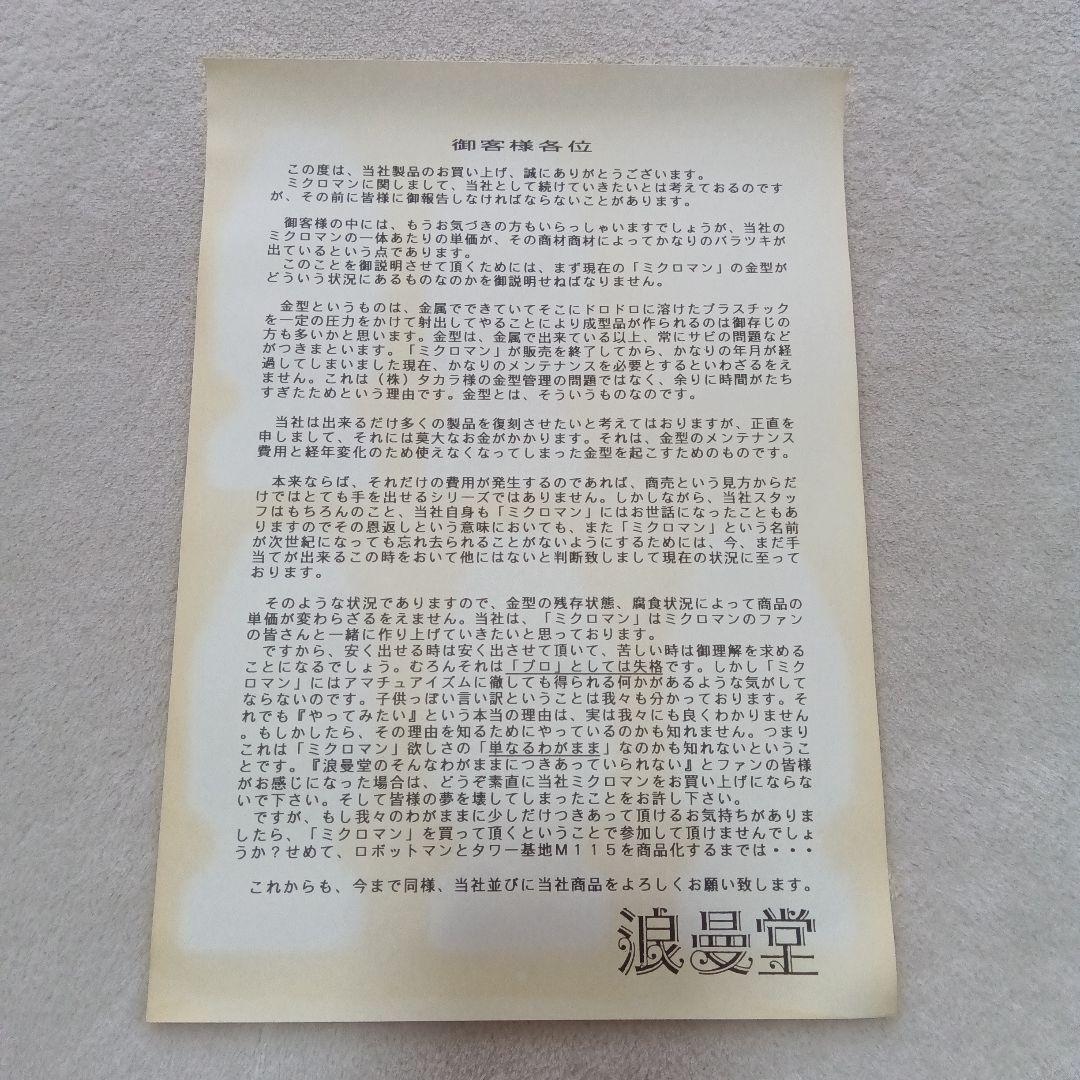 御客様各位
この度は、当社製品のお買い上げ、誠にありがとうございます。
ミクロマンに関しまして、当社として続けていきたいとは考えておるのです
が、その前に皆様に御報告しなければならないことがあります。
御客様の中には、もうお気づきの方もいらっしゃいますでしょうが、当社の
ミクロマンの一体あたりの単価が、その商材商材によってかなりのバラツキが
出ているという点であります。
このことを御説明させて頂くためには、まず現在の「ミクロマン」の金型が
どういう状況にあるものなのかを御説明せねばなりません。
金型というものは、金属でできていてそこにドロドロに溶けたプラスチック
を一定の圧力をかけて射出してやることにより成型品が作られるのは御存じの
方も多いかと思います。金型は、金属で出来ている以上、常にサビの問題など
がつきまといます。「ミクロマン」が販売を終了してから、かなりの年月が経
過してしまいました現在、かなりのメンテナンスを必要とするといわざるをえ
ません。これは（株）タカラ様の金型管理の問題ではなく、余りに時間がたち
すぎたためという理由です。金型とは、そういうものなのです。
当社は出来るだけ多くの製品を復刻させたいと考えてはおりますが、正直を
申しまして、それには莫大なお金がかかります。それは、金型のメンテナンス
費用と経年変化のため使えなくなってしまった金型を起こすためのものです。
本来ならば、それだけの費用が発生するのであれば、商売という見方からだ
けではとても手を出せるシリーズではありません。しかしながら、当社スタッ
フはもちろんのこと、当社自身も「ミクロマン」にはお世話になったこともあ
りますのでその恩返しという意味においても、また「ミクロマン」という名前
が次世紀になっても忘れ去られることがないようにするためには、今、まだ手
当てが出来るこの時をおいて他にはないと判断致しまして現在の状況に至って
おります。
そのような状況でありますので、金型の残存状態、腐食状況によって商品の
単価が変わらざるをえません。当社は、「ミクロマン」はミクロマンのファン
の皆さんと一緒に作り上げていきたいと思っております。
ですから、安く出せる時は安く出させて頂いて、苦しい時は御理解を求める
ことになるでしょう。むろんそれは「プロ」としては失格です。しかし「ミク
ロマン」にはアマチュアイズムに徹しても得られる何かがあるような気がして
ならないのです。子供っぽい言い訳ということは我々も分かっております。そ
れでも『やってみたい』という本当の理由は、実は我々にも良くわかりません
。もしかしたら、その理由を知るためにやっているのかも知れません。つまり
これは「ミクロマン」欲しさの「単なるわがまま」なのかも知れないというこ
とです。『浪曼堂のそんなわがままにつきあっていられない』とファンの皆様
がお感じになった場合は、どうぞ素直に当社ミクロマンをお買い上げにならな
いで下さい。そして皆様の夢を壊してしまったことをお許し下さい。
ですが、もし我々のわがままに少しだけつきあって頂けるお気持ちがありま
したら、「ミクロマン」を買って頂くということで参加して頂けませんでしょ
うか？せめて、ロボットマンとタワー基地Ｍ１１５を商品化するまでは・・・
これからも、今まで同様、当社並びに当社商品をよろしくお願い致します。
浪曼堂